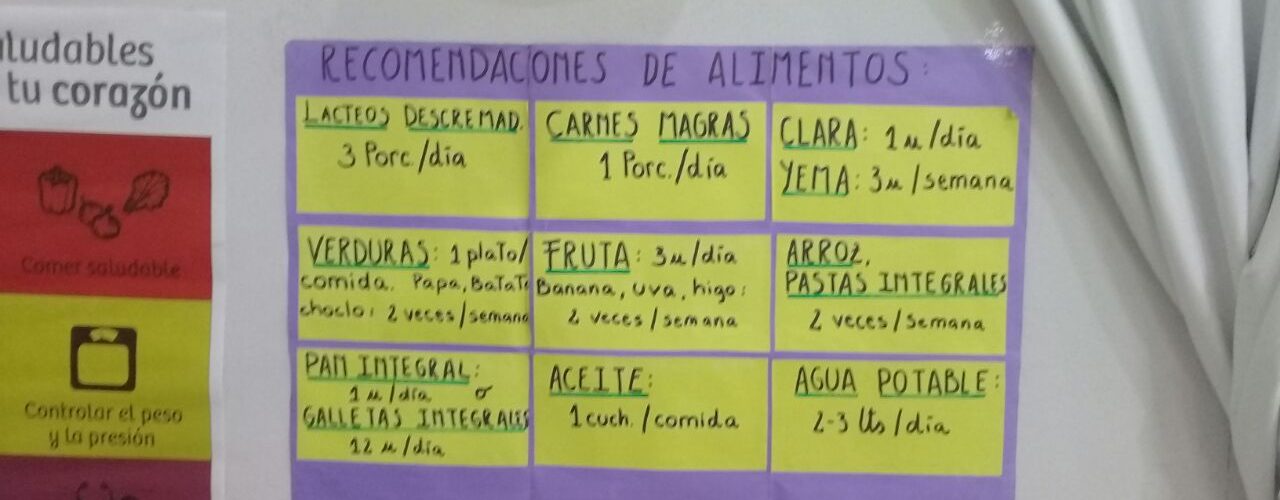 ludables
tu corazón
Comer saludable
Controlar el peso
y la presión
RECOMENDACIONES DE ALIMENTOS:
LACTEOS DESCREMAD.
3 Porc./día
CARNES MAGRAS
1 Porc./día
CLARA: 1u/día
YEMA: 3u/semana
VERDURAS: 1 plato/
comida. Papa, Batata
choclo: 2 veces/semana
FRUTA: 3u/día
Banana, uva, higo:
2 veces/semana
ARROZ,
PASTAS INTEGRALES
2 veces/semana
PAN INTEGRAL:
1u/día o
GALLETAS INTEGRALES
12u/día
ACEITE:
1 cuch./comida
AGUA POTABLE:
2-3 lts/día